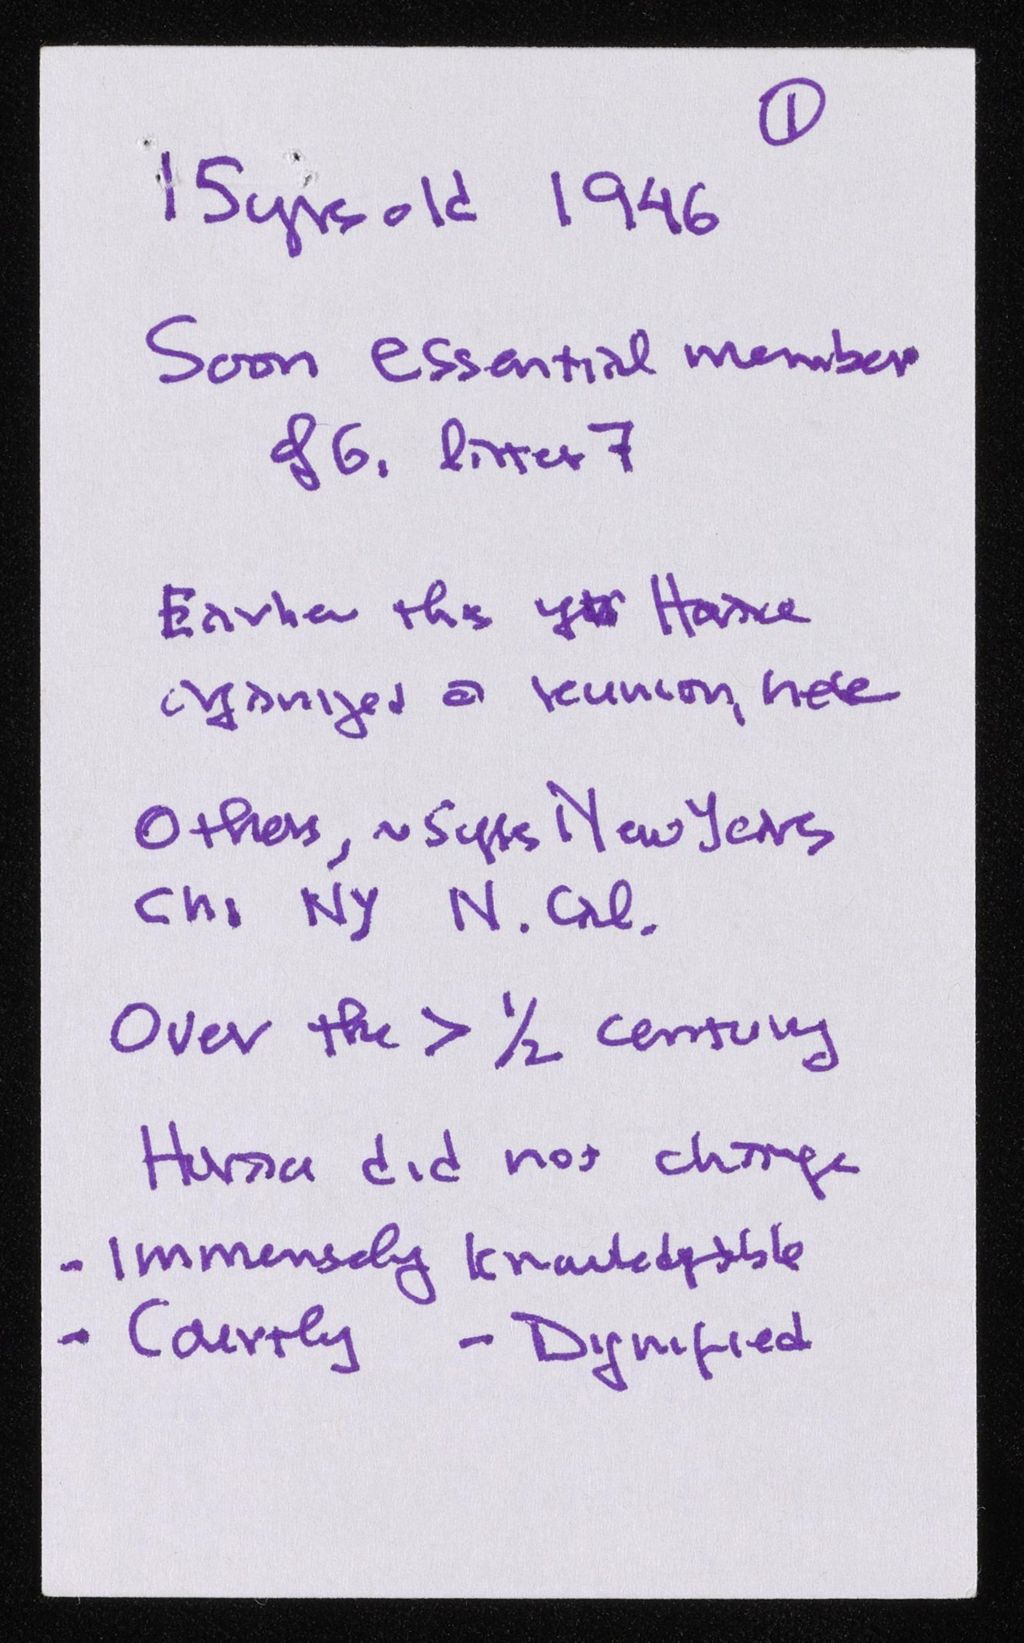 ①
15 yrs old 1946
Soon essential member
of G. litter 7
Earlier this yr Horace
organized a reunion, here
Others, ~5yrs New Years
Chi NY N. Cal.
Over the > 1/2 century
Horace did not change
- Immensely knowledgible
- Courtly - Dignified